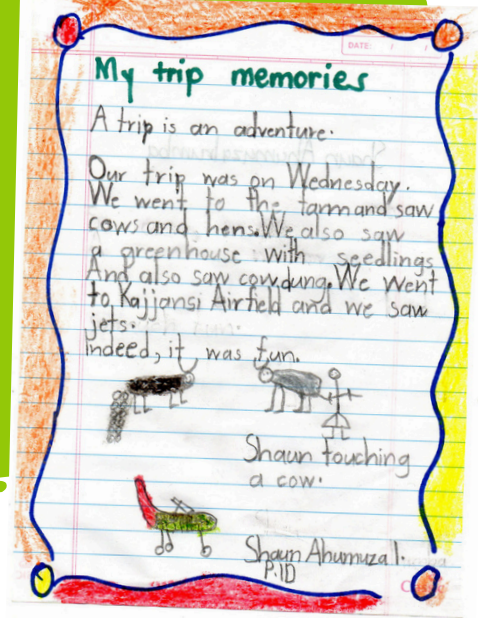 DATE: / /
My trip memories
A trip is an adventure.
Our trip was on Wednesday.
We went to the farm and saw
cows and hens. We also saw
a greenhouse with seedlings
And also saw cow dung. We went
to Kajjansi Airfield and we saw
jets.
indeed, it was fun.
Shaun touching
a cow.
Shaun Ahumuza I.
P.1D